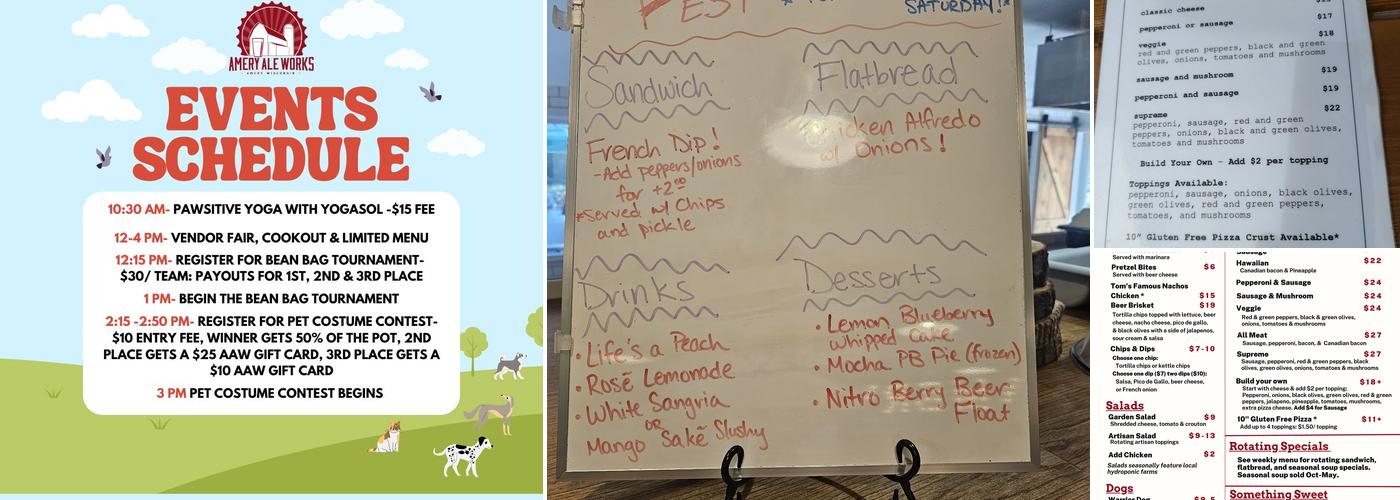 AMERY ALE WORKS
AMERY WISCONSIN
EVENTS
SCHEDULE
10:30 AM- PAWSITIVE YOGA WITH YOGASOL -$15 FEE
12-4 PM- VENDOR FAIR, COOKOUT & LIMITED MENU
12:15 PM- REGISTER FOR BEAN BAG TOURNAMENT-
$30/ TEAM: PAYOUTS FOR 1ST, 2ND & 3RD PLACE
1 PM- BEGIN THE BEAN BAG TOURNAMENT
2:15 -2:50 PM- REGISTER FOR PET COSTUME CONTEST-
$10 ENTRY FEE, WINNER GETS 50% OF THE POT, 2ND
PLACE GETS A $25 AAW GIFT CARD, 3RD PLACE GETS A
$10 AAW GIFT CARD
3 PM PET COSTUME CONTEST BEGINS
FEST
SATURDAY!*
Sandwich
French Dip!
-Add peppers/onions
for +2.00
*Served w/ Chips
and pickle
Flatbread
Chicken Alfredo
w/ Onions!
Drinks
• Life's a Peach
• Rosé Lemonade
• White Sangria
or
Mango Sakē Slushy
Desserts
• Lemon Blueberry
whipped Cake
• Mocha PB Pie (frozen)
• Nitro Berry Beer
Float
classic cheese
pepperoni or sausage $17
veggie $18
red and green peppers, black and green
olives, onions, tomatoes and mushrooms
sausage and mushroom $19
pepperoni and sausage $19
supreme $22
pepperoni, sausage, red and green
peppers, onions, black and green olives,
tomatoes and mushrooms
Build Your Own - Add $2 per topping
Toppings Available:
pepperoni, sausage, onions, black olives,
green olives, red and green peppers,
tomatoes, and mushrooms
10" Gluten Free Pizza Crust Available*
Served with marinara
Pretzel Bites $6
Served with beer cheese
Tom's Famous Nachos
Chicken * $15
Beer Brisket $19
Tortilla chips topped with lettuce, beer
cheese, nacho cheese, pico de gallo,
& black olives with a side of jalapenos,
sour cream & salsa
Chips & Dips $7-10
Choose one chip:
Tortilla chips or kettle chips
Choose one dip ($7) two dips ($10):
Salsa, Pico de Gallo, beer cheese,
or French onion
Salads
Garden Salad $9
Shredded cheese, tomato & crouton
Artisan Salad $9-13
Rotating artisan toppings
Add Chicken $2
Salads seasonally feature local
hydroponic farms
Dogs
Sausage
Hawaiian $22
Canadian bacon & Pineapple
Pepperoni & Sausage $24
Sausage & Mushroom $24
Veggie $24
Red & green peppers, black & green olives,
onions, tomatoes & mushrooms
All Meat $27
Sausage, pepperoni, bacon, & Canadian bacon
Supreme $27
Sausage, pepperoni, red & green peppers, black
olives, green olives, onions, tomatoes & mushrooms
Build your own $18+
Start with cheese & add $2 per topping:
Pepperoni, onions, black olives, green olives, red & green
peppers, jalapeno, pineapple, tomatoes, mushrooms,
extra pizza cheese. Add $4 for Sausage
10" Gluten Free Pizza * $11+
Add up to 4 toppings: $1.50/ topping
Rotating Specials
See weekly menu for rotating sandwich,
flatbread, and seasonal soup specials.
Seasonal soup sold Oct-May.
Something Sweet